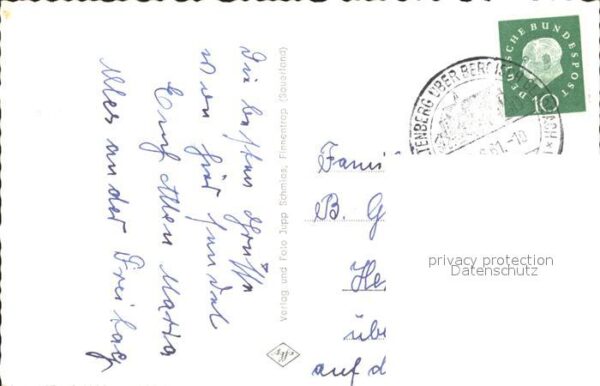 Die besten Grüße
von hier sendet
Euch Allen Maria
Alles an der Freitag
Verlag und Foto Jupp Schmies, Finnentrop (Sauerland)
DEUTSCHE BUNDESPOST
10
TENBERG ÜBER BERGISCH
61.-10
Fami
B. G
He
übe
auf d
privacy protection
Datenschutz